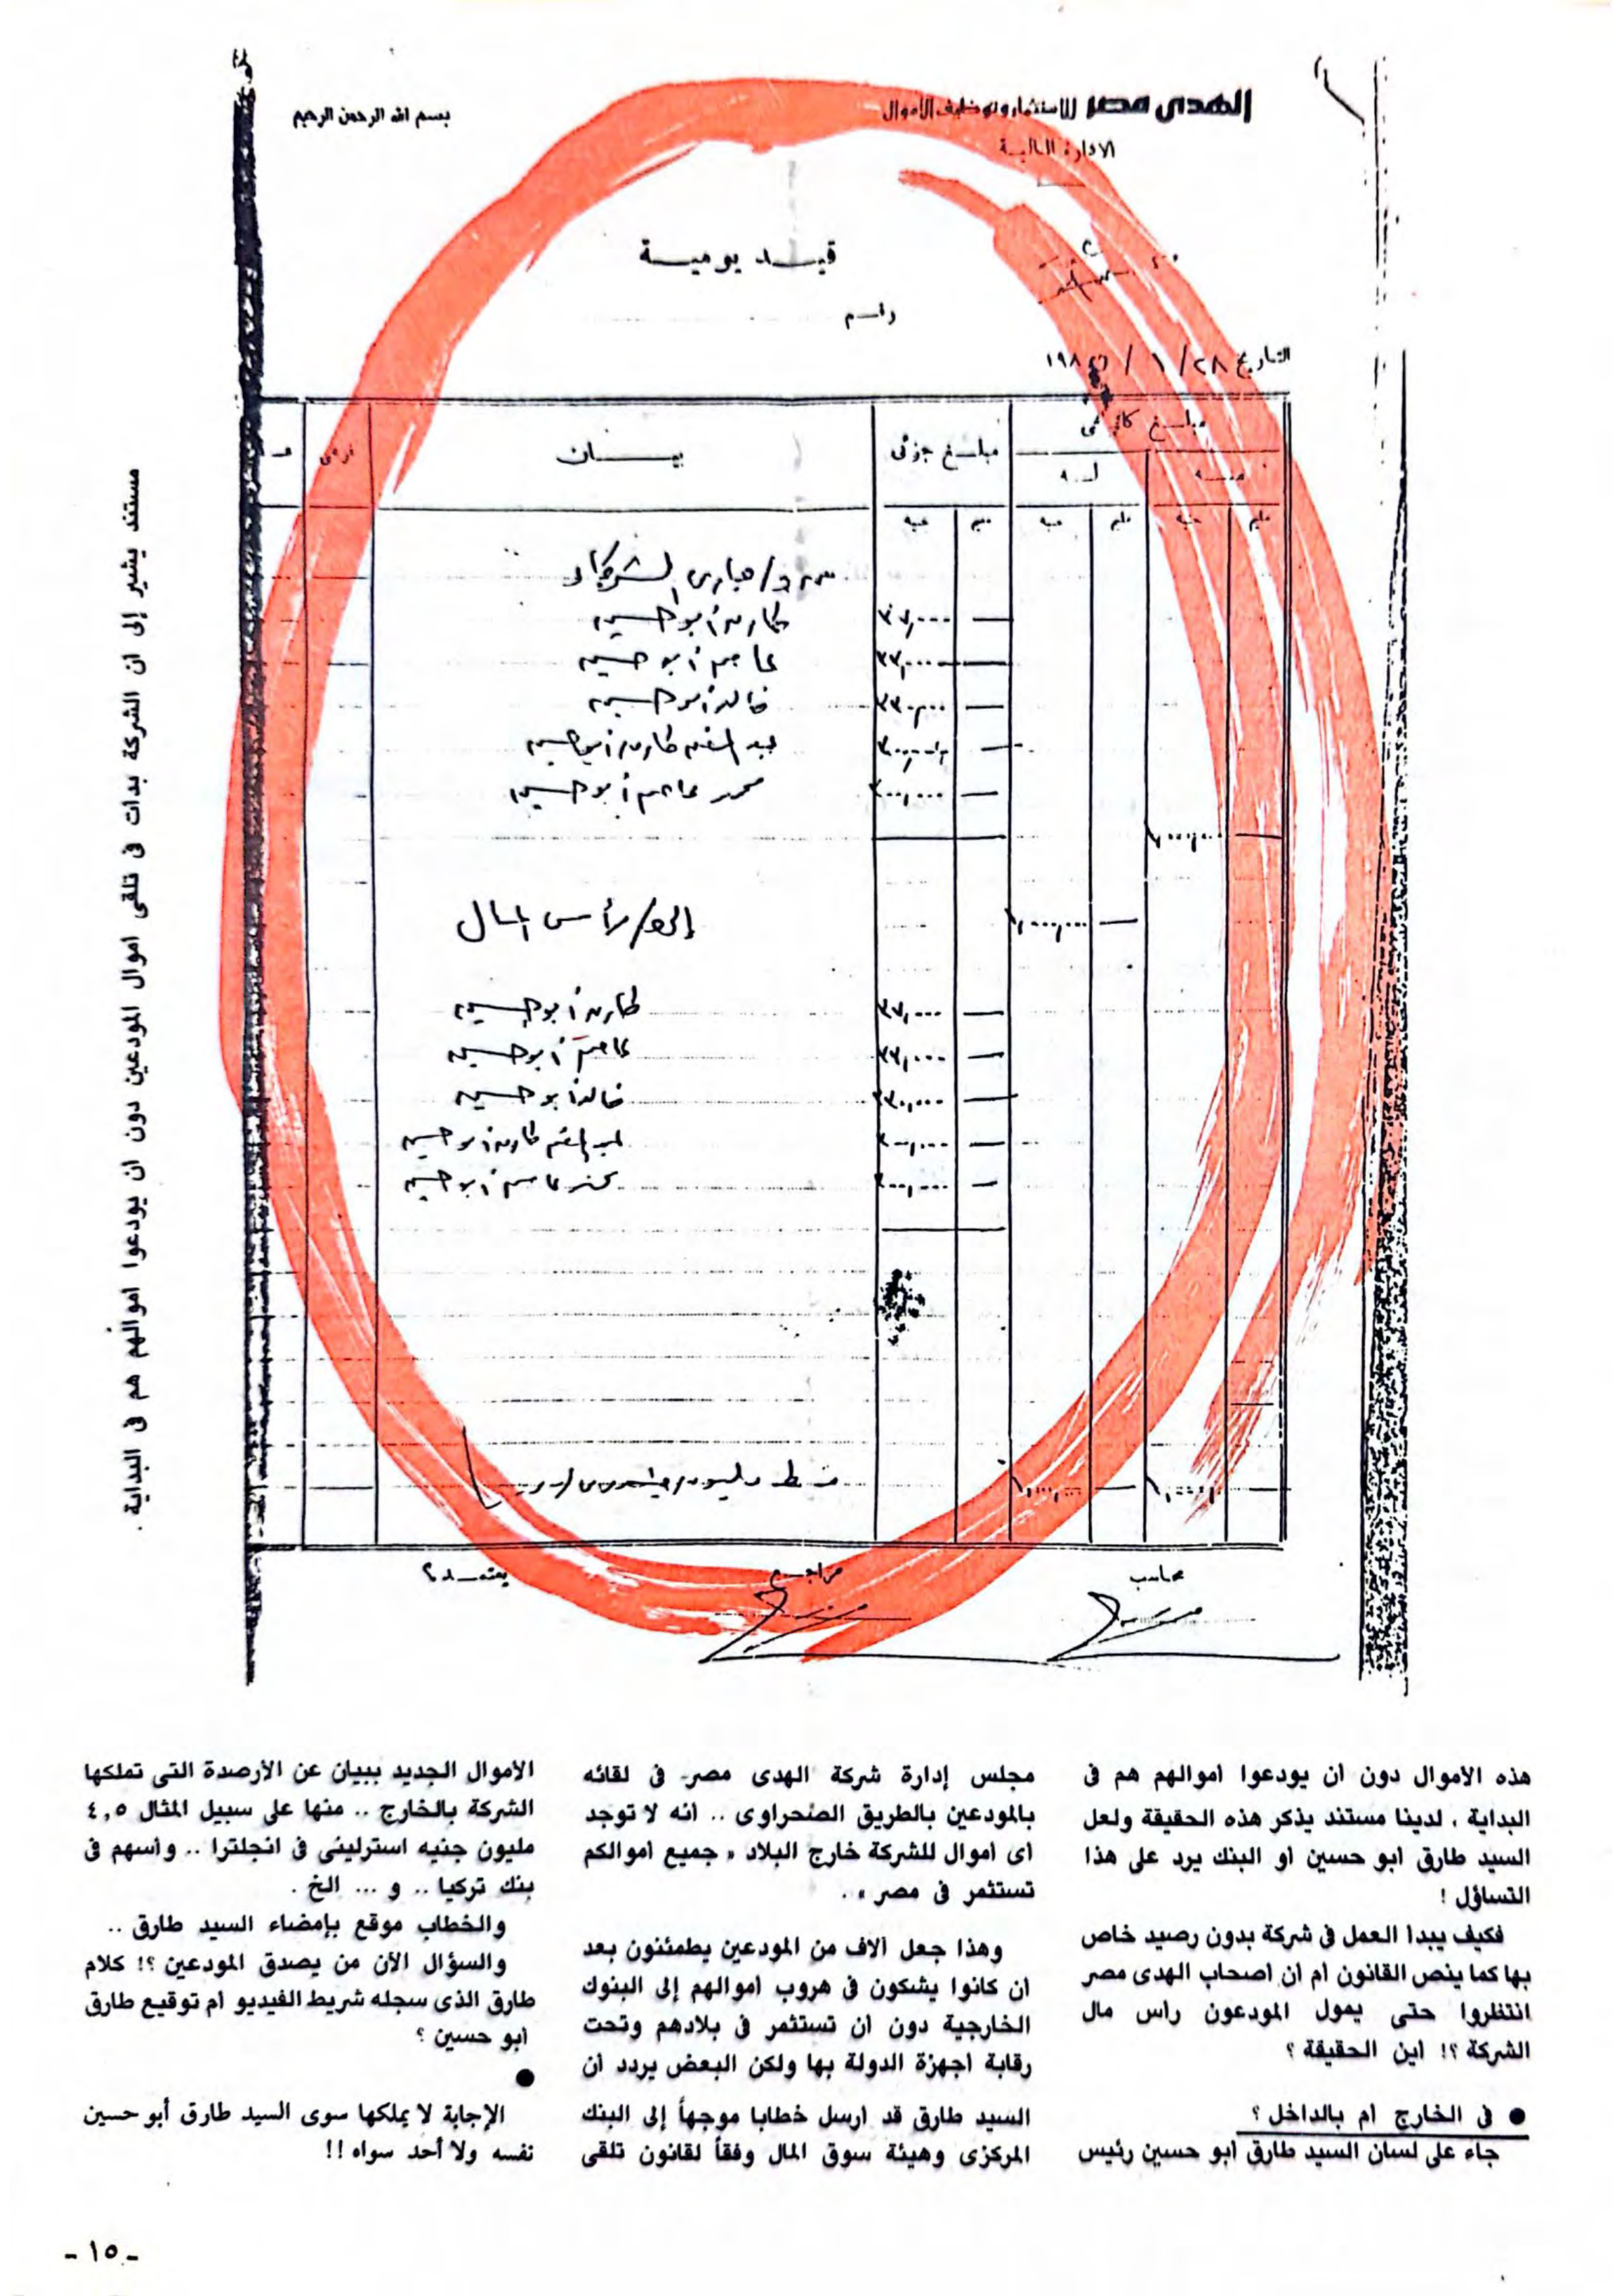 الهدى مصر للاستثمار وتوظيف الأموال
بسم الله الرحمن الرحيم
الادارة المالية
قيد يومية
التاريخ ٢٨/ ١/ ١٩٨
مبلغ جزئى
بيان
فرعى
مليم
جنيه
مليم
جنيه
جنيه
طارق أبو حسين
٣٧,٠٠٠
عاصم أبو حسين
٣٣,٠٠٠
خالد أبو حسين
عبد المنعم طارق أبو حسين
محمد عاصم أبو حسين
إلى ح/ رأس المال
طارق أبو حسين
٣٧,٠٠٠
عاصم أبو حسين
٣٣,٠٠٠
خالد أبو حسين
عبد المنعم طارق أبو حسين
محمد عاصم أبو حسين
محاسب
مراجع
يعتمد
مستند يشير إلى ان الشركة بدات فى تلقى اموال المودعين دون ان يودعوا اموالهم هم فى البداية .
هذه الاموال دون ان يودعوا اموالهم هم فى
البداية . لدينا مستند يذكر هذه الحقيقة ولعل
السيد طارق ابو حسين او البنك يرد على هذا
التساؤل !
فكيف يبدا العمل فى شركة بدون رصيد خاص
بها كما ينص القانون ام ان اصحاب الهدى مصر
انتظروا حتى يمول المودعون راس مال
الشركة ؟! اين الحقيقة ؟
● فى الخارج ام بالداخل ؟
جاء على لسان السيد طارق ابو حسين رئيس
مجلس إدارة شركة الهدى مصر- فى لقائه
بالمودعين بالطريق الصحراوى .. انه لا توجد
اى اموال للشركة خارج البلاد « جميع اموالكم
تستثمر فى مصر » .
وهذا جعل آلاف من المودعين يطمئنون بعد
ان كانوا يشكون فى هروب اموالهم إلى البنوك
الخارجية دون ان تستثمر فى بلادهم وتحت
رقابة اجهزة الدولة بها ولكن البعض يردد ان
السيد طارق قد ارسل خطابا موجهاً إلى البنك
المركزى وهيئة سوق المال وفقاً لقانون تلقى
الاموال الجديد ببيان عن الأرصدة التى تملكها
الشركة بالخارج .. منها على سبيل المثال ٤,٥
مليون جنيه استرلينى فى انجلترا .. واسهم فى
بنك تركيا .. و ... الخ .
والخطاب موقع بإمضاء السيد طارق ..
والسؤال الآن من يصدق المودعين ؟! كلام
طارق الذى سجله شريط الفيديو ام توقيع طارق
ابو حسين ؟
●
الإجابة لا يملكها سوى السيد طارق أبو حسين
نفسه ولا أحد سواه !!
- ١٥ -